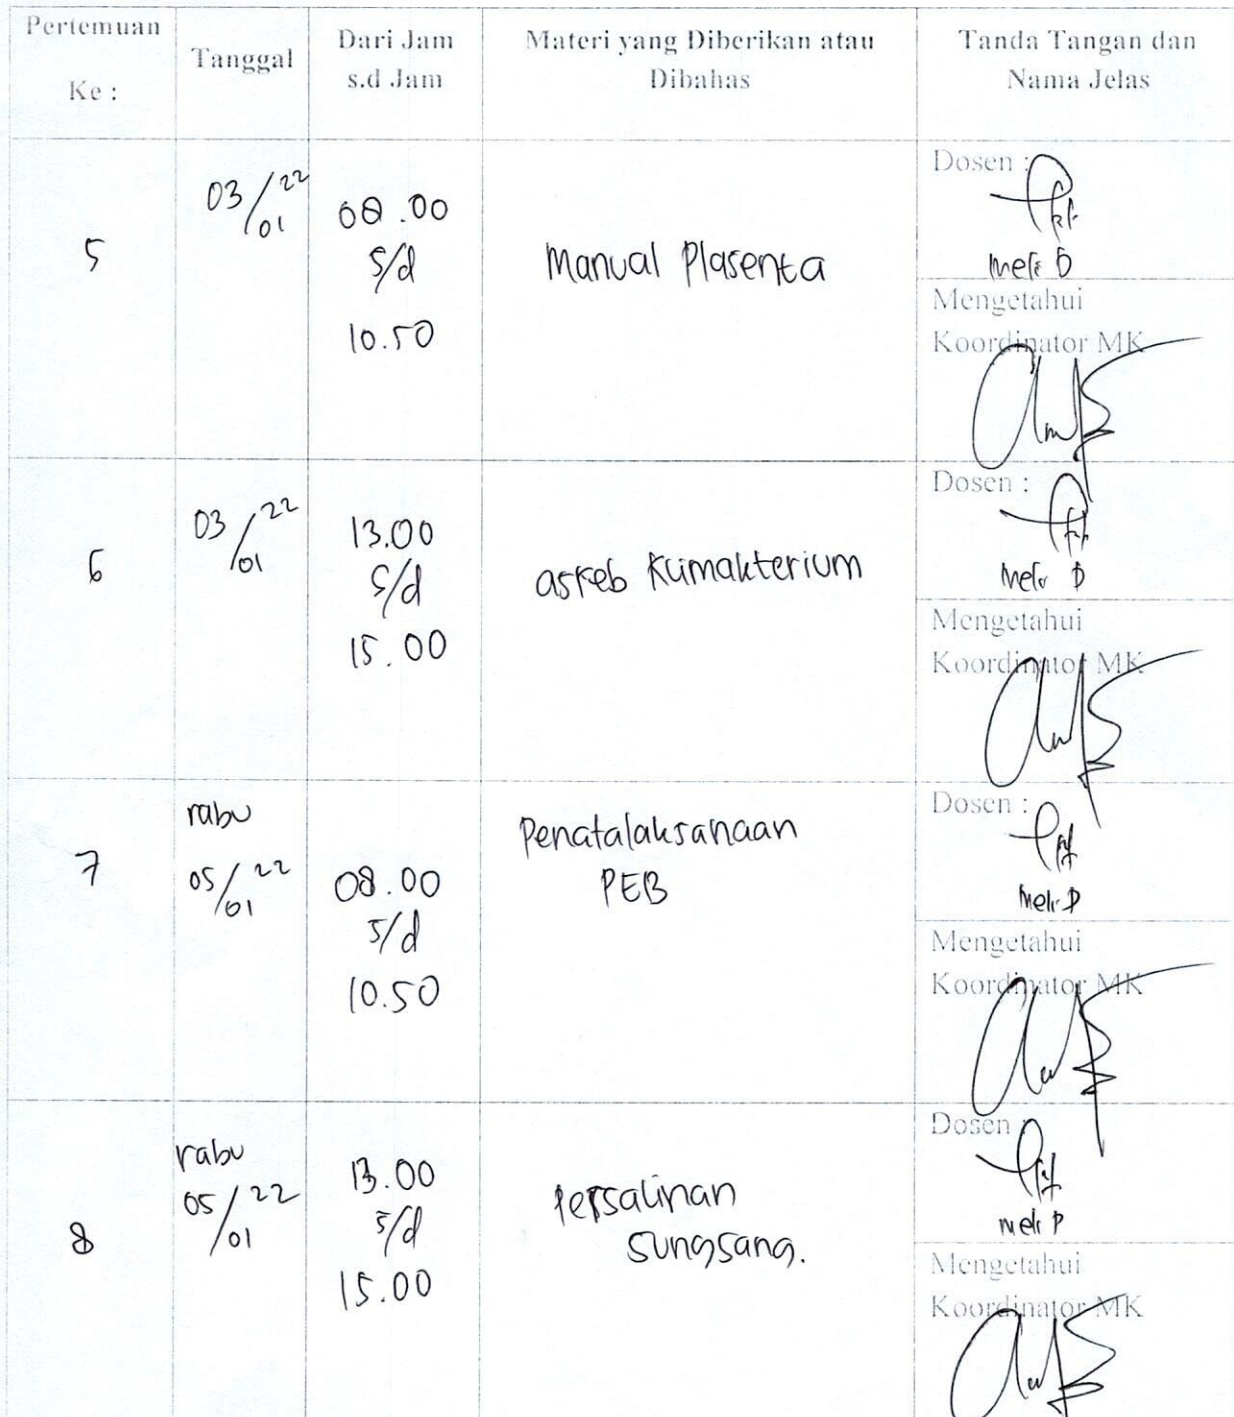 Pertemuan
Ke :
Tanggal
Dari Jam
s.d Jam
Materi yang Diberikan atau
Dibahas
Tanda Tangan dan
Nama Jelas
5
03/01 22
08.00
s/d
10.50
Manual Plasenta
Dosen :
Mengetahui
Koordinator MK
6
03/01 22
13.00
s/d
15.00
askeb Klimakterium
Dosen :
Mengetahui
Koordinator MK
7
rabu
05/01 22
08.00
s/d
10.50
Penatalaksanaan
PEB
Dosen :
Mengetahui
Koordinator MK
8
rabu
05/01 22
13.00
s/d
15.00
Persalinan
Sungsang.
Dosen :
Mengetahui
Koordinator MK